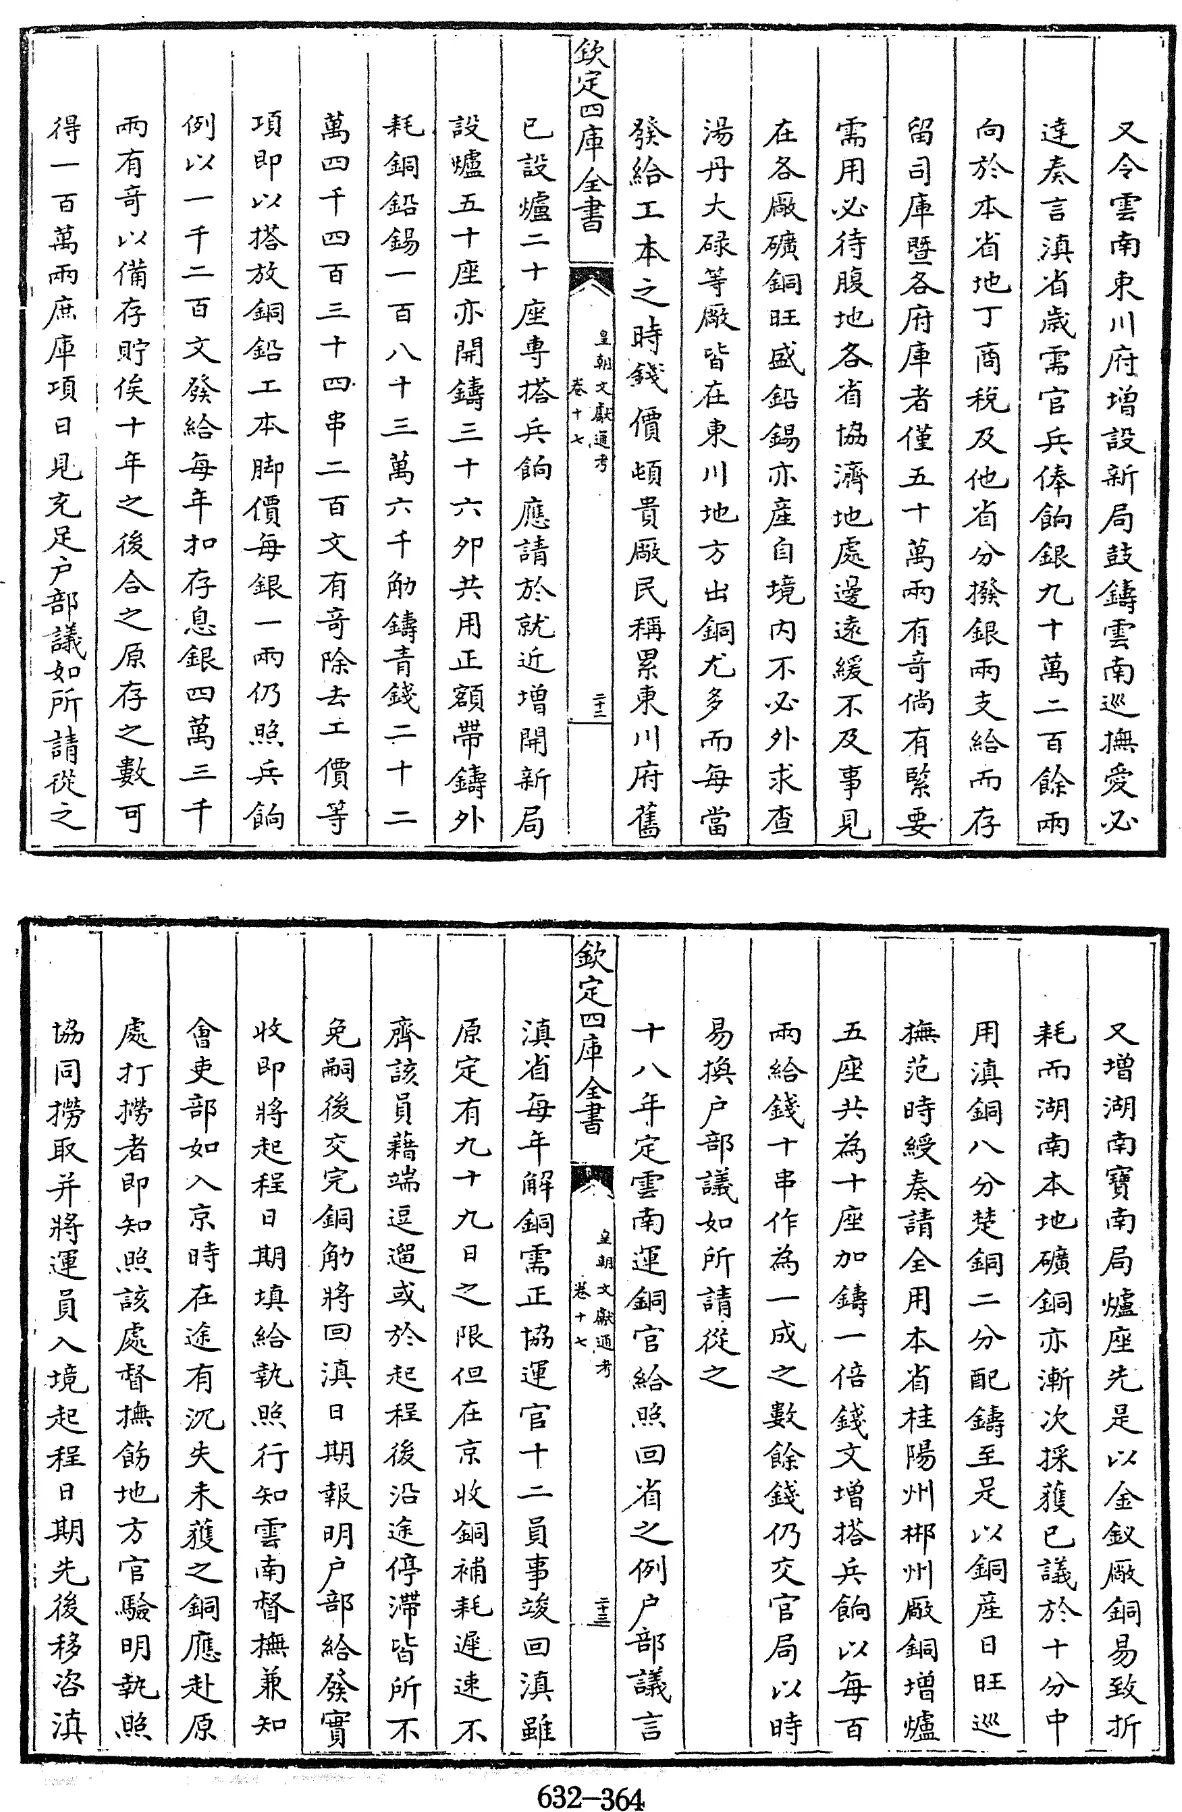 又令雲南東川府增設新局鼓鑄雲南巡撫愛必
達奏言滇省歲需官兵俸餉銀九十萬二百餘兩
向於本省地丁商税及他省分撥銀兩支給而存
留司庫暨各府庫者僅五十萬兩有奇倘有緊要
需用必待腹地各省協濟地處邊遠緩不及事見
在各廠礦銅旺盛鉛錫亦産自境内不必外求查
湯丹大碌等廠皆在東川地方出銅尤多而每當
發給工本之時錢價頓貴廠民稱累東川府舊
欽定四庫全書
皇朝文獻通考
卷十七
二十二
已設爐二十座專搭兵餉應請於就近增開新局
設爐五十座亦開鑄三十六夘共用正額帶鑄外
耗銅鉛錫一百八十三萬六千觔鑄青錢二十二
萬四千四百三十四串二百文有奇除去工價等
項即以搭放銅鉛工本脚價每銀一兩仍照兵餉
例以一千二百文發給每年扣存息銀四萬三千
兩有奇以備存貯俟十年之後合之原存之數可
得一百萬兩庶庫項日見充足户部議如所請從之
又增湖南寶南局爐座先是以金釵廠銅易致折
耗而湖南本地礦銅亦漸次採獲已議於十分中
用滇銅八分楚銅二分配鑄至是以銅産日旺巡
撫范時綬奏請全用本省桂陽州郴州廠銅增爐
五座共為十座加鑄一倍錢文增搭兵餉以每百
兩給錢十串作為一成之數餘錢仍交官局以時
易換户部議如所請從之
十八年定雲南運銅官給照回省之例户部議言
欽定四庫全書
皇朝文獻通考
卷十七
二十三
滇省每年解銅需正協運官十二員事竣回滇雖
原定有九十九日之限但在京收銅補耗遲速不
齊該員藉端逗遛或於起程後沿途停滯皆所不
免嗣後交完銅觔將回滇日期報明户部給發實
收即將起程日期填給執照行知雲南督撫兼知
會吏部如入京時在途有沉失未獲之銅應赴原
處打撈者即知照該處督撫飭地方官驗明執照
協同撈取并將運員入境起程日期先後移咨滇
632-364